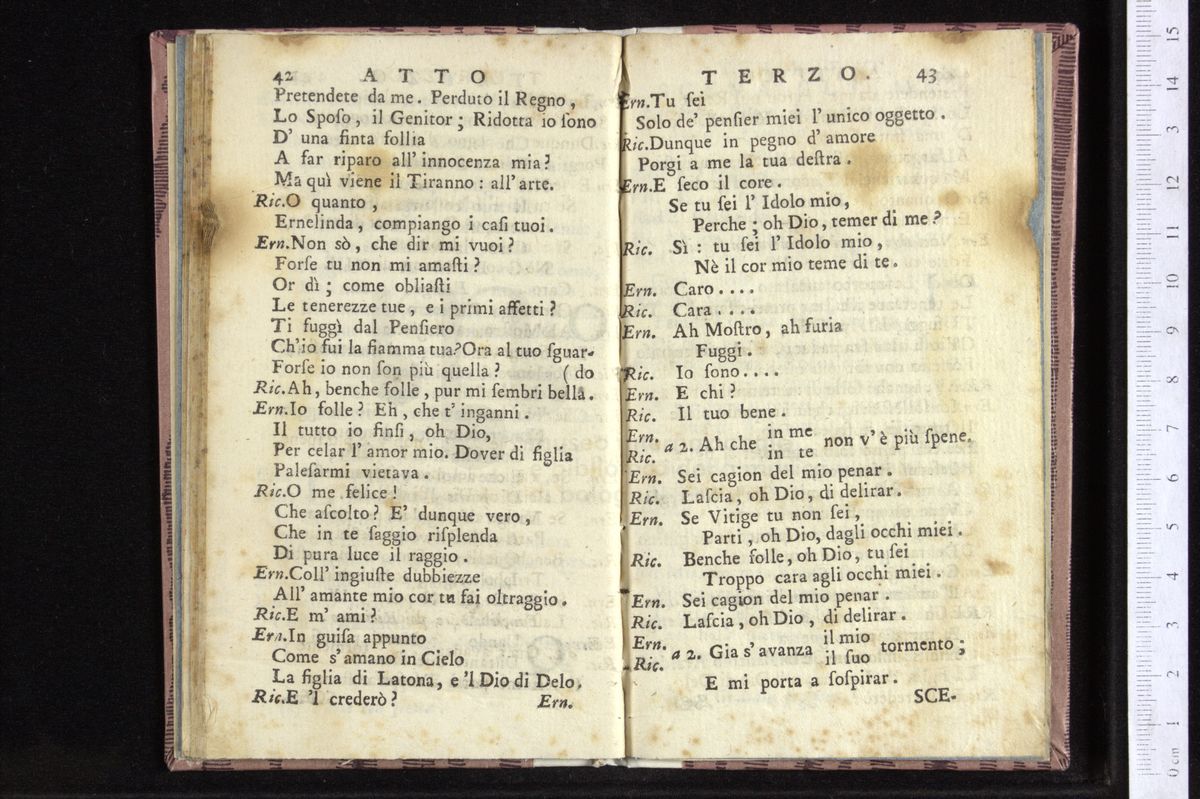 42 ATTO
Pretendete da me. Perduto il Regno,
Lo Spoſo, il Genitor; Ridotta io ſono
D' una finta follia
A far riparo all' innocenza mia?
Ma quì viene il Tiranno: all' arte.
Ric.O quanto,
Ernelinda, compiango i caſi tuoi.
Ern.Non sò, che dir mi vuoi?
Forſe tu non mi amaſti?
Or dì; come obliaſti
Le tenerezze tue, e i primi affetti?
Ti fuggì dal Penſiero
Ch'io fui la fiamma tua?Ora al tuo ſguar-
Forſe io non ſon più quella? (do
Ric.Ah, benche folle, pur mi ſembri bella.
Ern.Io folle? Eh, che t' inganni.
Il tutto io finſi, oh Dio,
Per celar l' amor mio. Dover di figlia
Paleſarmi vietava.
Ric.O me felice!
Che aſcolto? E' dunque vero,
Che in te ſaggio riſplenda
Di pura luce il raggio.
Ern.Coll' ingiuſte dubbiezze
All' amante mio cor tu fai oltraggio.
Ric.E m' ami?
Ern.In guiſa appunto
Come s' amano in Cielo
La figlia di Latona, e 'l Dio di Delo.
Ric.E 'l crederò? Ern.
TERZO. 43
Ern.Tu ſei
Solo de' penſier miei l' unico oggetto.
Ric.Dunque in pegno d' amore
Porgi a me la tua deſtra.
Ern.E ſeco il core.
Se tu ſei l' Idolo mio,
Perche; oh Dio, temer di me?
Ric. Sì: tu ſei l' Idolo mio,
Nè il cor mio teme di te.
Ern. Caro....
Ric. Cara....
Ern. Ah Moſtro, ah furia
Fuggi.
Ric. Io ſono....
Ern. E chi?
Ric. Il tuo bene.
Ern. in me
a 2. Ah che non v' è più ſpene.
Ric. in te
Ern. Sei cagion del mio penar.
Ric. Laſcia, oh Dio, di delirar.
Ern. Se Vitige tu non ſei,
Parti, oh Dio, dagli occhi miei.
Ric. Benche folle, oh Dio, tu ſei
Troppo cara agli occhi miei.
Ern. Sei cagion del mio penar.
Ric. Laſcia, oh Dio, di delirar.
Ern. il mio
a 2. Gia s' avanza tormento;
Ric. il ſuo
E mi porta a ſoſpirar.
SCE-
0 cm 1 2 3 4 5 6 7 8 9 10 11 12 13 14 15